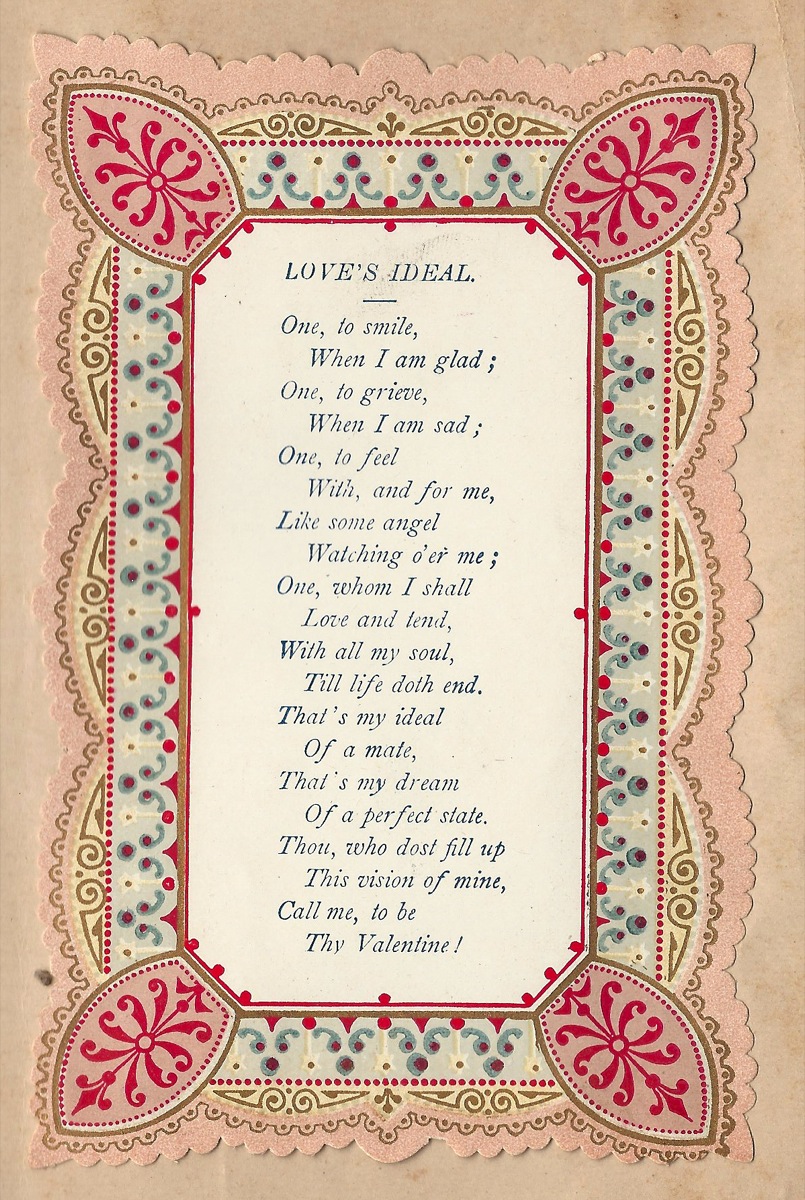 LOVE'S IDEAL.
One, to smile,
When I am glad ;
One, to grieve,
When I am sad ;
One, to feel
With, and for me,
Like some angel
Watching o'er me ;
One, whom I shall
Love and tend,
With all my soul,
Till life doth end.
That's my ideal
Of a mate,
That's my dream
Of a perfect state.
Thou, who dost fill up
This vision of mine,
Call me, to be
Thy Valentine !